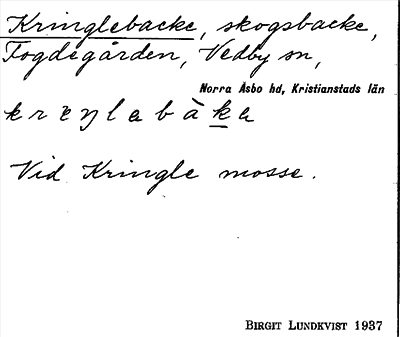 Kringlebacke, skogsbacke,
Fogdegården, Vedby sn,
Norra Åsbo hd, Kristianstads län
Vid Kringle mosse.
BIRGIT LUNDKVIST 1937